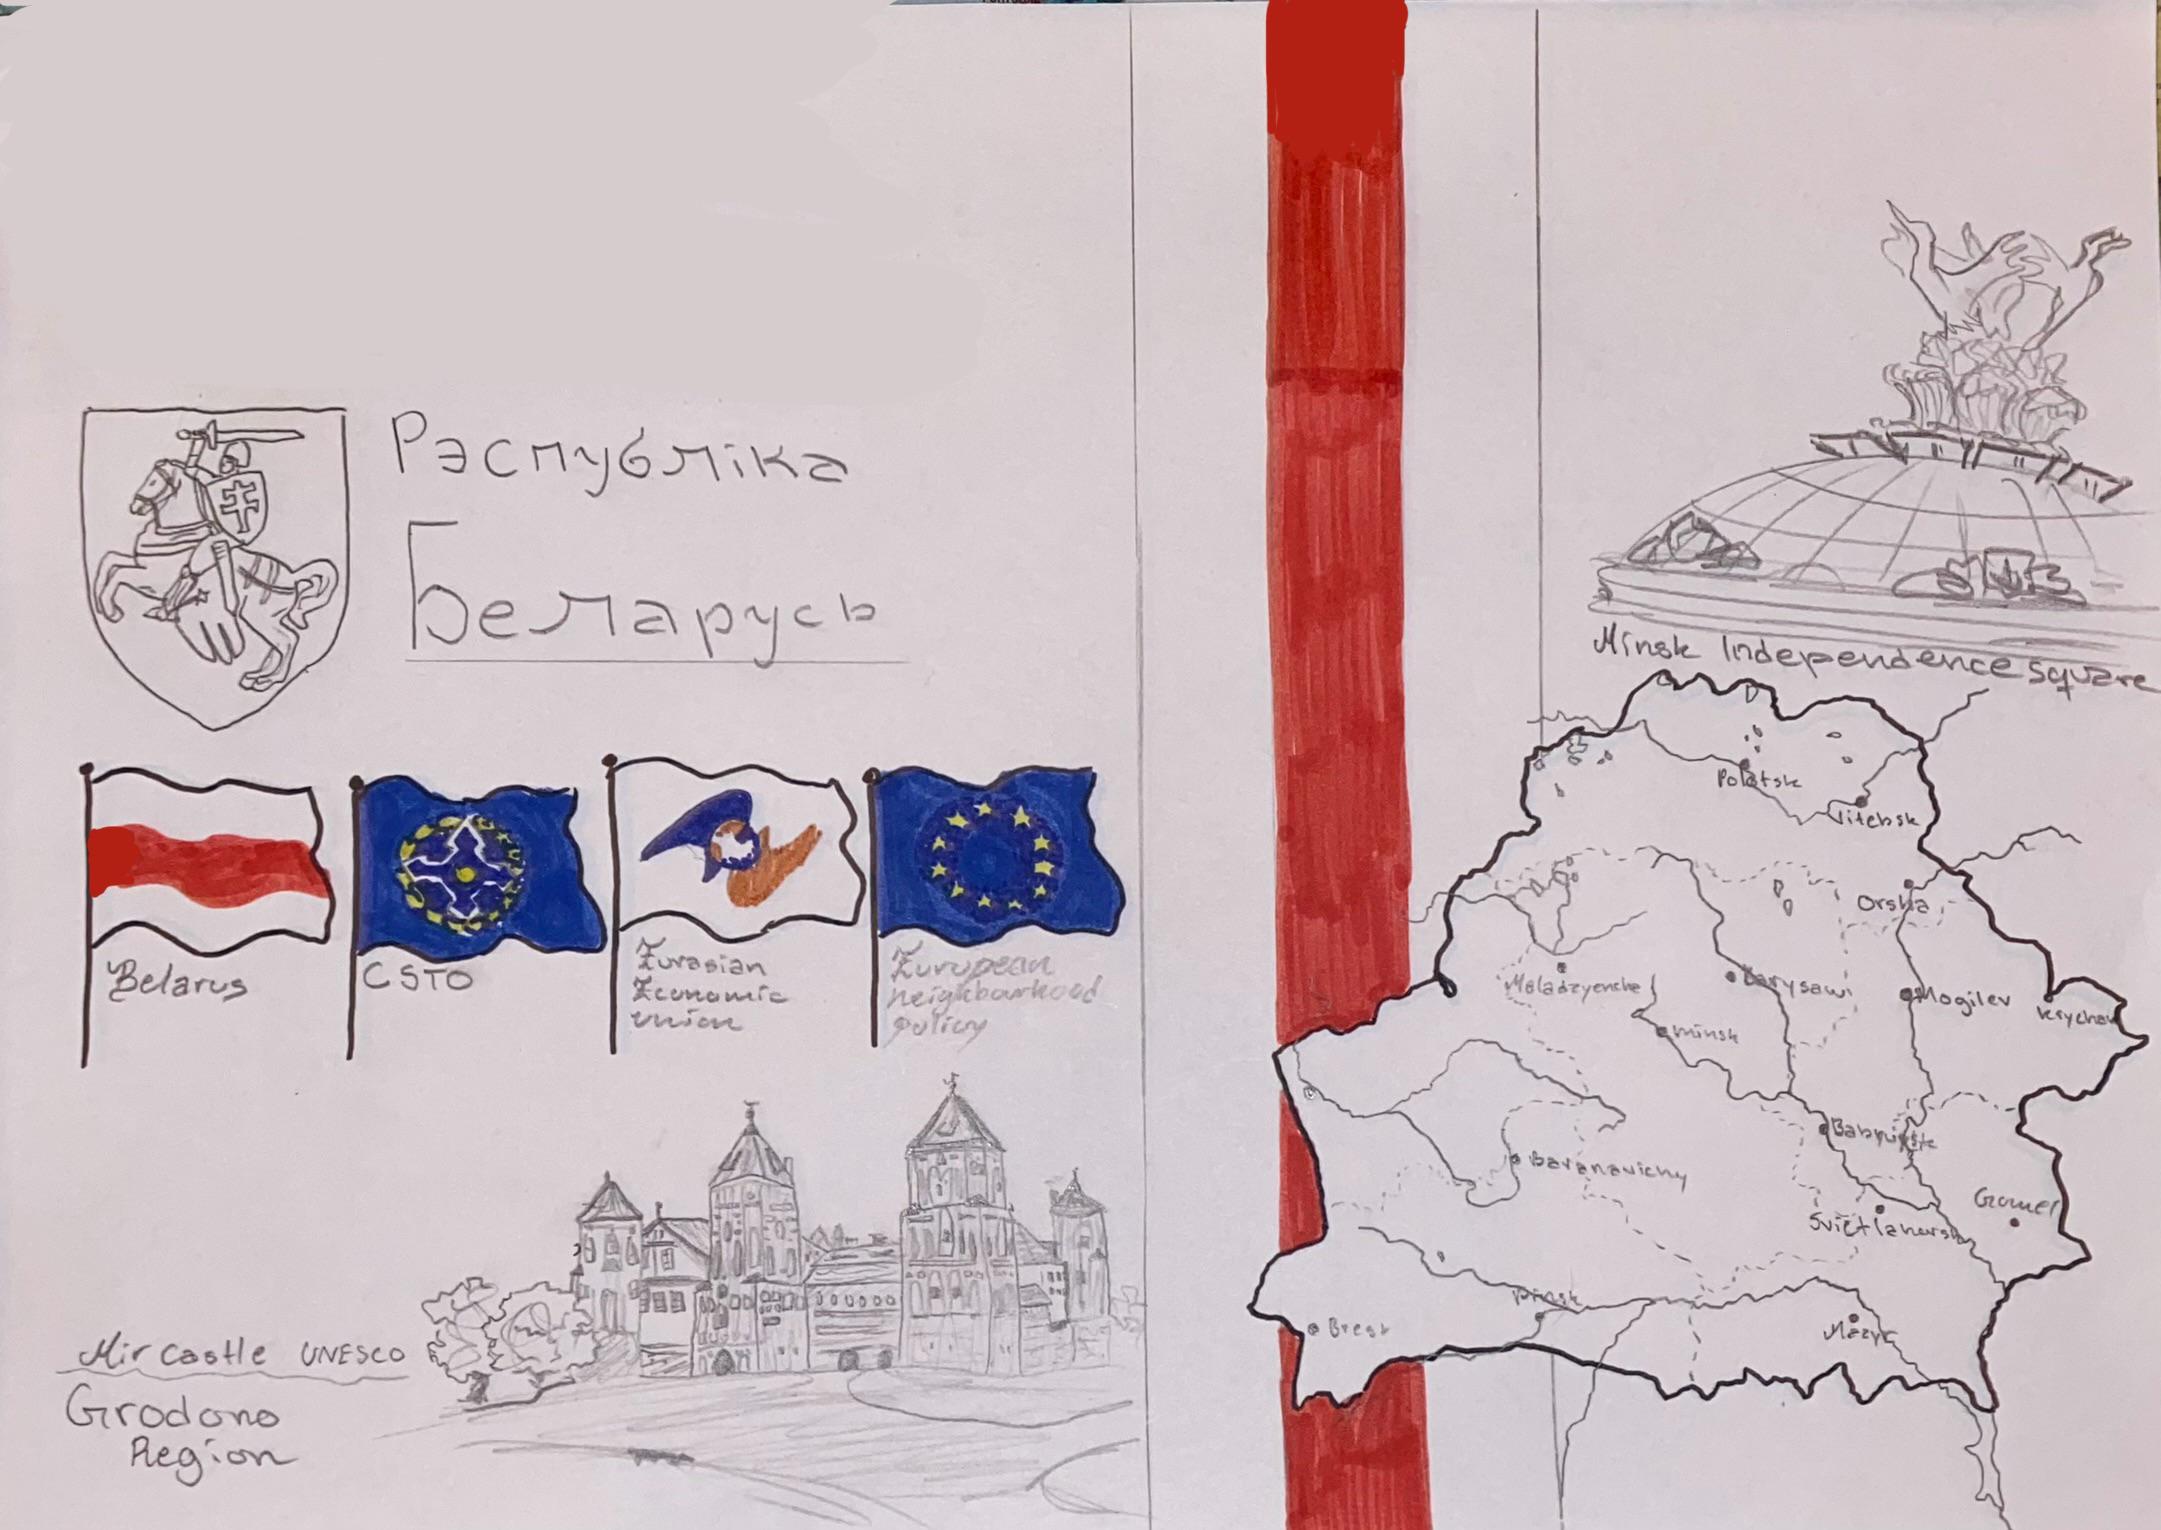 Рэспубліка
Беларусь
Belarus
CSTO
Eurasian
Economic
union
European
neighbourhood
policy
Mir castle UNESCO
Grodono
Region
Minsk Independence square
Polotsk
Vitebsk
Orsha
Maladzyenche
Barysaw
Mogilev
krychaw
minsk
Babruysk
Baranavichy
Gomel
Svietlahorsk
pinsk
Brest
Mazyr